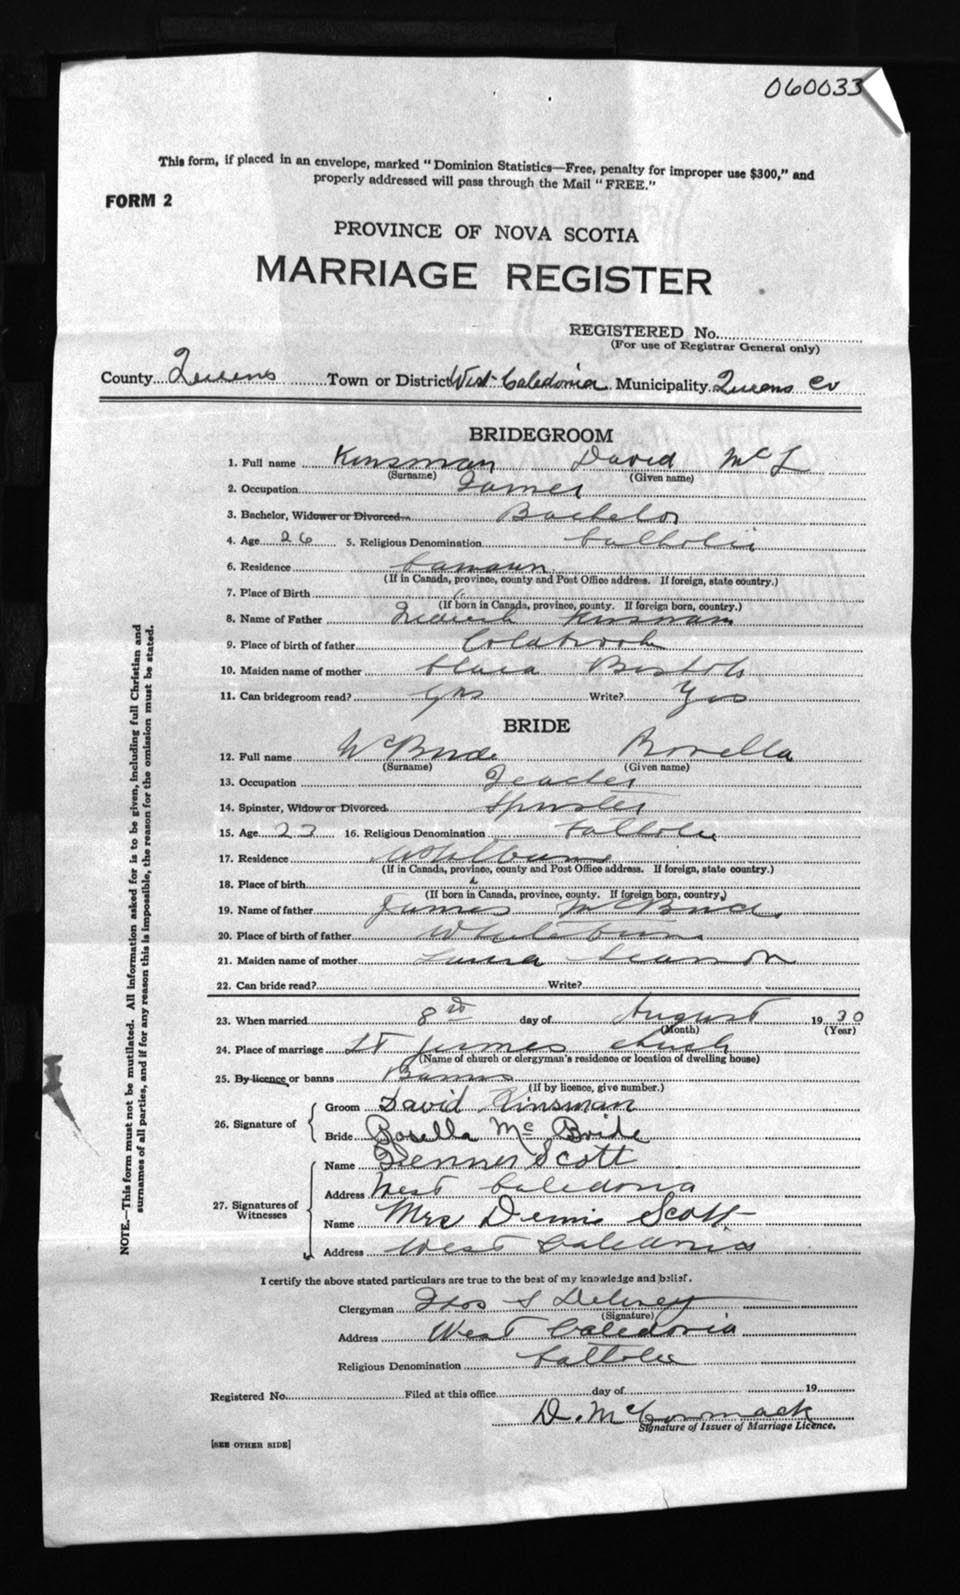 060033
This form, if placed in an envelope, marked "Dominion Statistics—Free, penalty for improper use $300," and
properly addressed will pass through the Mail "FREE."
FORM 2
PROVINCE OF NOVA SCOTIA
MARRIAGE REGISTER
REGISTERED No.
(For use of Registrar General only)
County Queens Town or District West Caledonia Municipality Queens Co
BRIDEGROOM
1. Full name Kinsman David McL
(Surname) (Given name)
2. Occupation Farmer
3. Bachelor, Widower or Divorced Bachelor
4. Age 26 5. Religious Denomination Catholic
6. Residence Canaan
(If in Canada, province, county and Post Office address. If foreign, state country.)
7. Place of Birth
(If born in Canada, province, county. If foreign born, country.)
8. Name of Father Kinsman
9. Place of birth of father
10. Maiden name of mother Clara
11. Can bridegroom read? Yes Write? Yes
BRIDE
12. Full name McBride Rosella
(Surname) (Given name)
13. Occupation Teacher
14. Spinster, Widow or Divorced Spinster
15. Age 23 16. Religious Denomination Catholic
17. Residence Whiteburn
(If in Canada, province, county and Post Office address. If foreign, state country.)
18. Place of birth
(If born in Canada, province, county. If foreign born, country.)
19. Name of father James McBride
20. Place of birth of father Whiteburn
21. Maiden name of mother Laura
22. Can bride read? Write?
23. When married 8 day of August 1930
(Month) (Year)
24. Place of marriage St church
(Name of church or clergyman's residence or location of dwelling house)
25. By licence or banns Banns
(If by licence, give number.)
26. Signature of
Groom David Kinsman
Bride Rosella McBride
27. Signatures of Witnesses
Name Scott
Address West Caledonia
Name Mrs Dennis Scott
Address West Caledonia
NOTE.—This form must not be mutilated. All information asked for is to be given, including full Christian and
surnames of all parties, and if for any reason this is impossible, the reason for the omission must be stated.
I certify the above stated particulars are true to the best of my knowledge and belief.
Clergyman Thos S
(Signature)
Address West Caledonia
Religious Denomination Catholic
Registered No. Filed at this office day of 19
D. McCormack
Signature of Issuer of Marriage Licence.
[SEE OTHER SIDE]